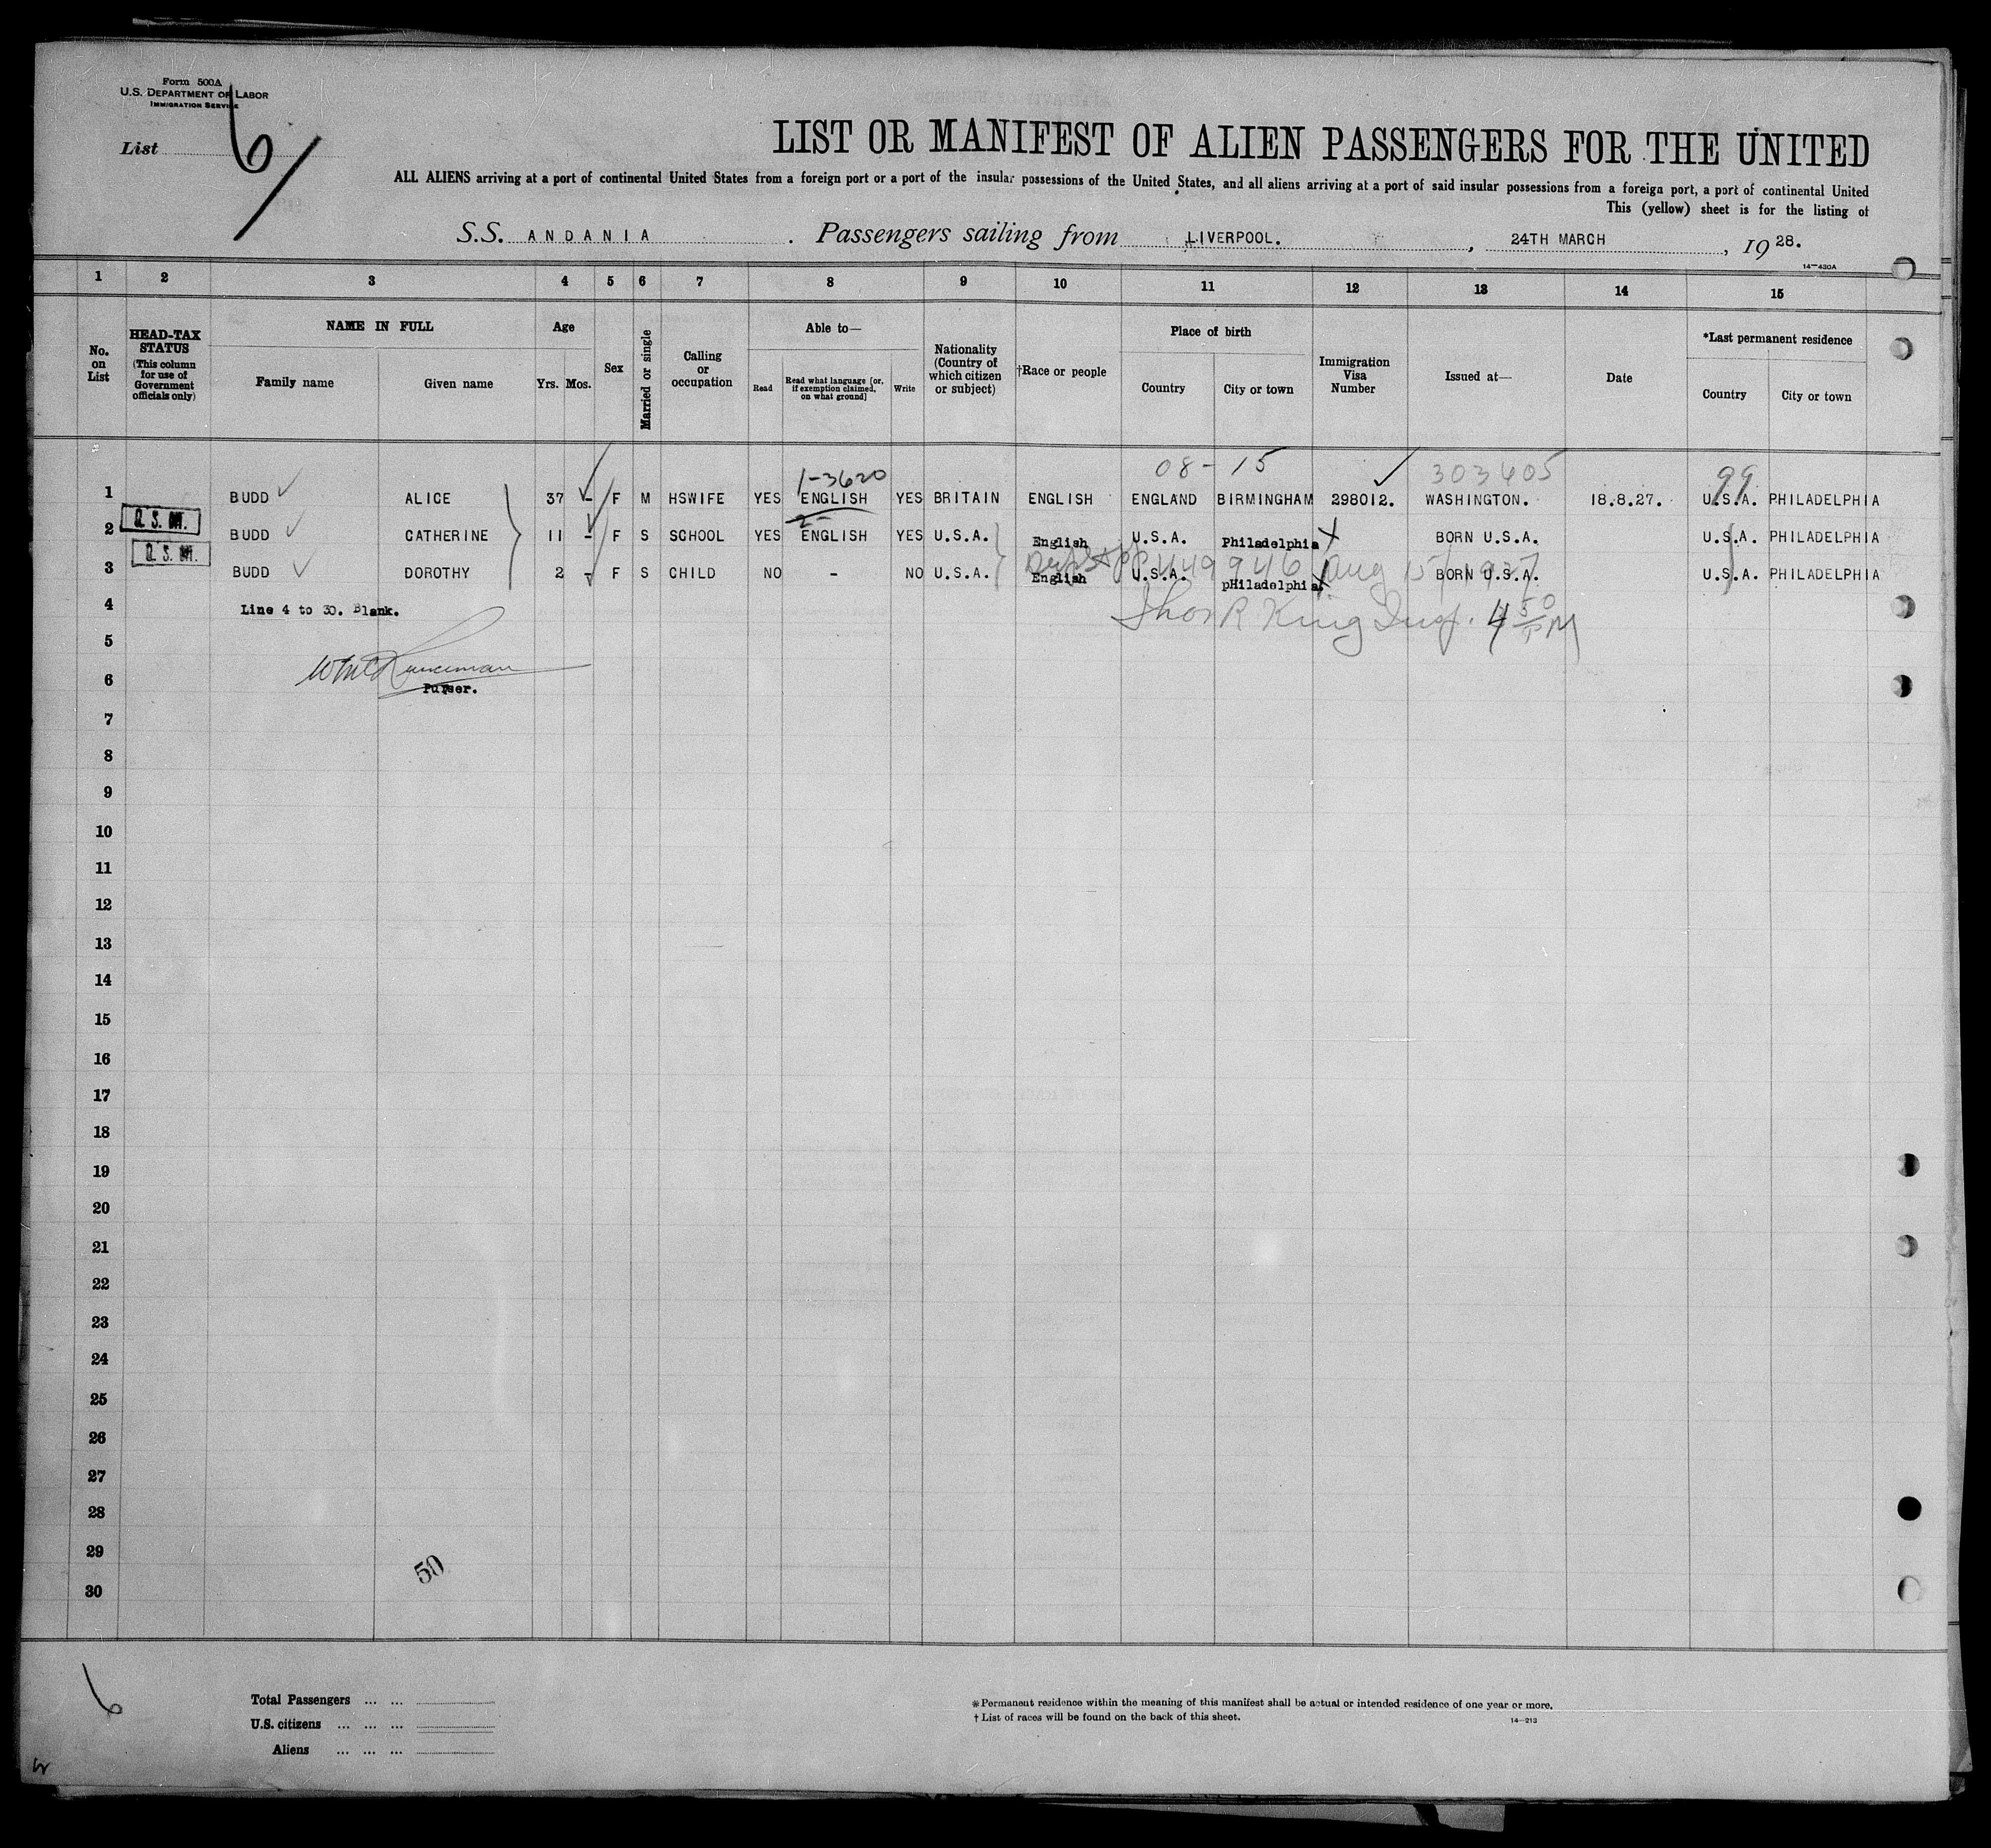 Form 500A
U.S. DEPARTMENT OF LABOR
IMMIGRATION SERVICE
List 6
LIST OR MANIFEST OF ALIEN PASSENGERS FOR THE UNITED
ALL ALIENS arriving at a port of continental United States from a foreign port or a port of the insular possessions of the United States, and all aliens arriving at a port of said insular possessions from a foreign port, a port of continental United
This (yellow) sheet is for the listing of
S.S. ANDANIA. Passengers sailing from LIVERPOOL., 24TH MARCH, 1928.
14—430A
1 2 3 4 5 6 7 8 9 10 11 12 13 14 15
No. on List HEAD-TAX STATUS (This column for use of Government officials only) NAME IN FULL Family name Given name Age Yrs. Mos. Sex Married or single Calling or occupation Able to— Read Read what language [or, if exemption claimed, on what ground] Write Nationality (Country of which citizen or subject) †Race or people Place of birth Country City or town Immigration Visa Number Issued at— Date *Last permanent residence Country City or town
1-3620 08- 15 303405 99
1 BUDD ALICE 37 - F M HSWIFE YES ENGLISH YES BRITAIN ENGLISH ENGLAND BIRMINGHAM 298012. WASHINGTON. 18.8.27. U.S.A. PHILADELPHIA
2-
2 BUDD CATHERINE 11 - F S SCHOOL YES ENGLISH YES U.S.A. English U.S.A. Philadelphia BORN U.S.A. U.S.A. PHILADELPHIA
449946 Aug 15/1927
3 BUDD DOROTHY 2 - F S CHILD NO - NO U.S.A. English U.S.A. pHiladelphia. BORN U.S.A. U.S.A. PHILADELPHIA
4 Line 4 to 30. Blank.
Thos R King Insp. 4 50 PM
5
6 Purser.
7
8
9
10
11
12
13
14
15
16
17
18
19
20
21
22
23
24
25
26
27
28
29
50
30
6
Total Passengers ... ...
U.S. citizens ... ... ...
Aliens ... ... ...
*Permanent residence within the meaning of this manifest shall be actual or intended residence of one year or more.
† List of races will be found on the back of this sheet.
14—213